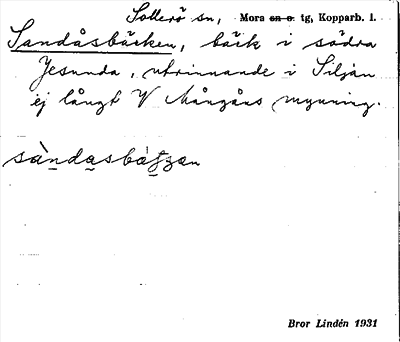 Sollerö sn, Mora sn o. tg, Kopparb. l.
Sandåsbäcken, bäck i södra
Gesunda, utrinnande i Siljan
ej långt V Mångåns mynning.
Bror Lindén 1931